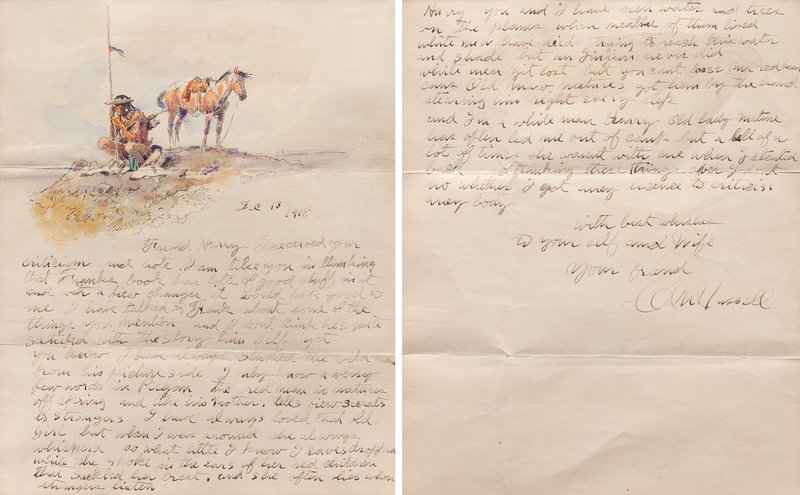 Dec 13
1918
Friend Harry I received your
criticism and note. I am like you in thinking
that Franks book has lots of good stuff in it
and with a few changes it would look good to
me I have talked to Frank about some of the
things you mention and I dont think hes quite
satisfied with the story him self yet
You know I have always studied the wild man
from his picture side I only know a verry
few words in Piegan the red man is natures
off spring and like his mother. tells few secrets
to strangers I had always loved that old
girl but when I was around she always
whisperd so what little I know I eavesdropped
while she spoke in the ears of her red children
that suckled her brest. and she often lies when
strangers listen
Harry you and I have seen water and trees
on the plains when neather of them lived
white men have died trying to reach this water
and shade but an Injun never did
white men get lost but you cant lose the red man
Old natures got him by the hand
stearing him right every step
and I'm a white man Harry old lady nature
has often led me out of camp but a hell of a
lot of times she wasent with me when I started
back thinking these things over I dont
no whether I got any licence to criticise
any body
with best wishes
to your self and Wife
Your friend
C M Russell